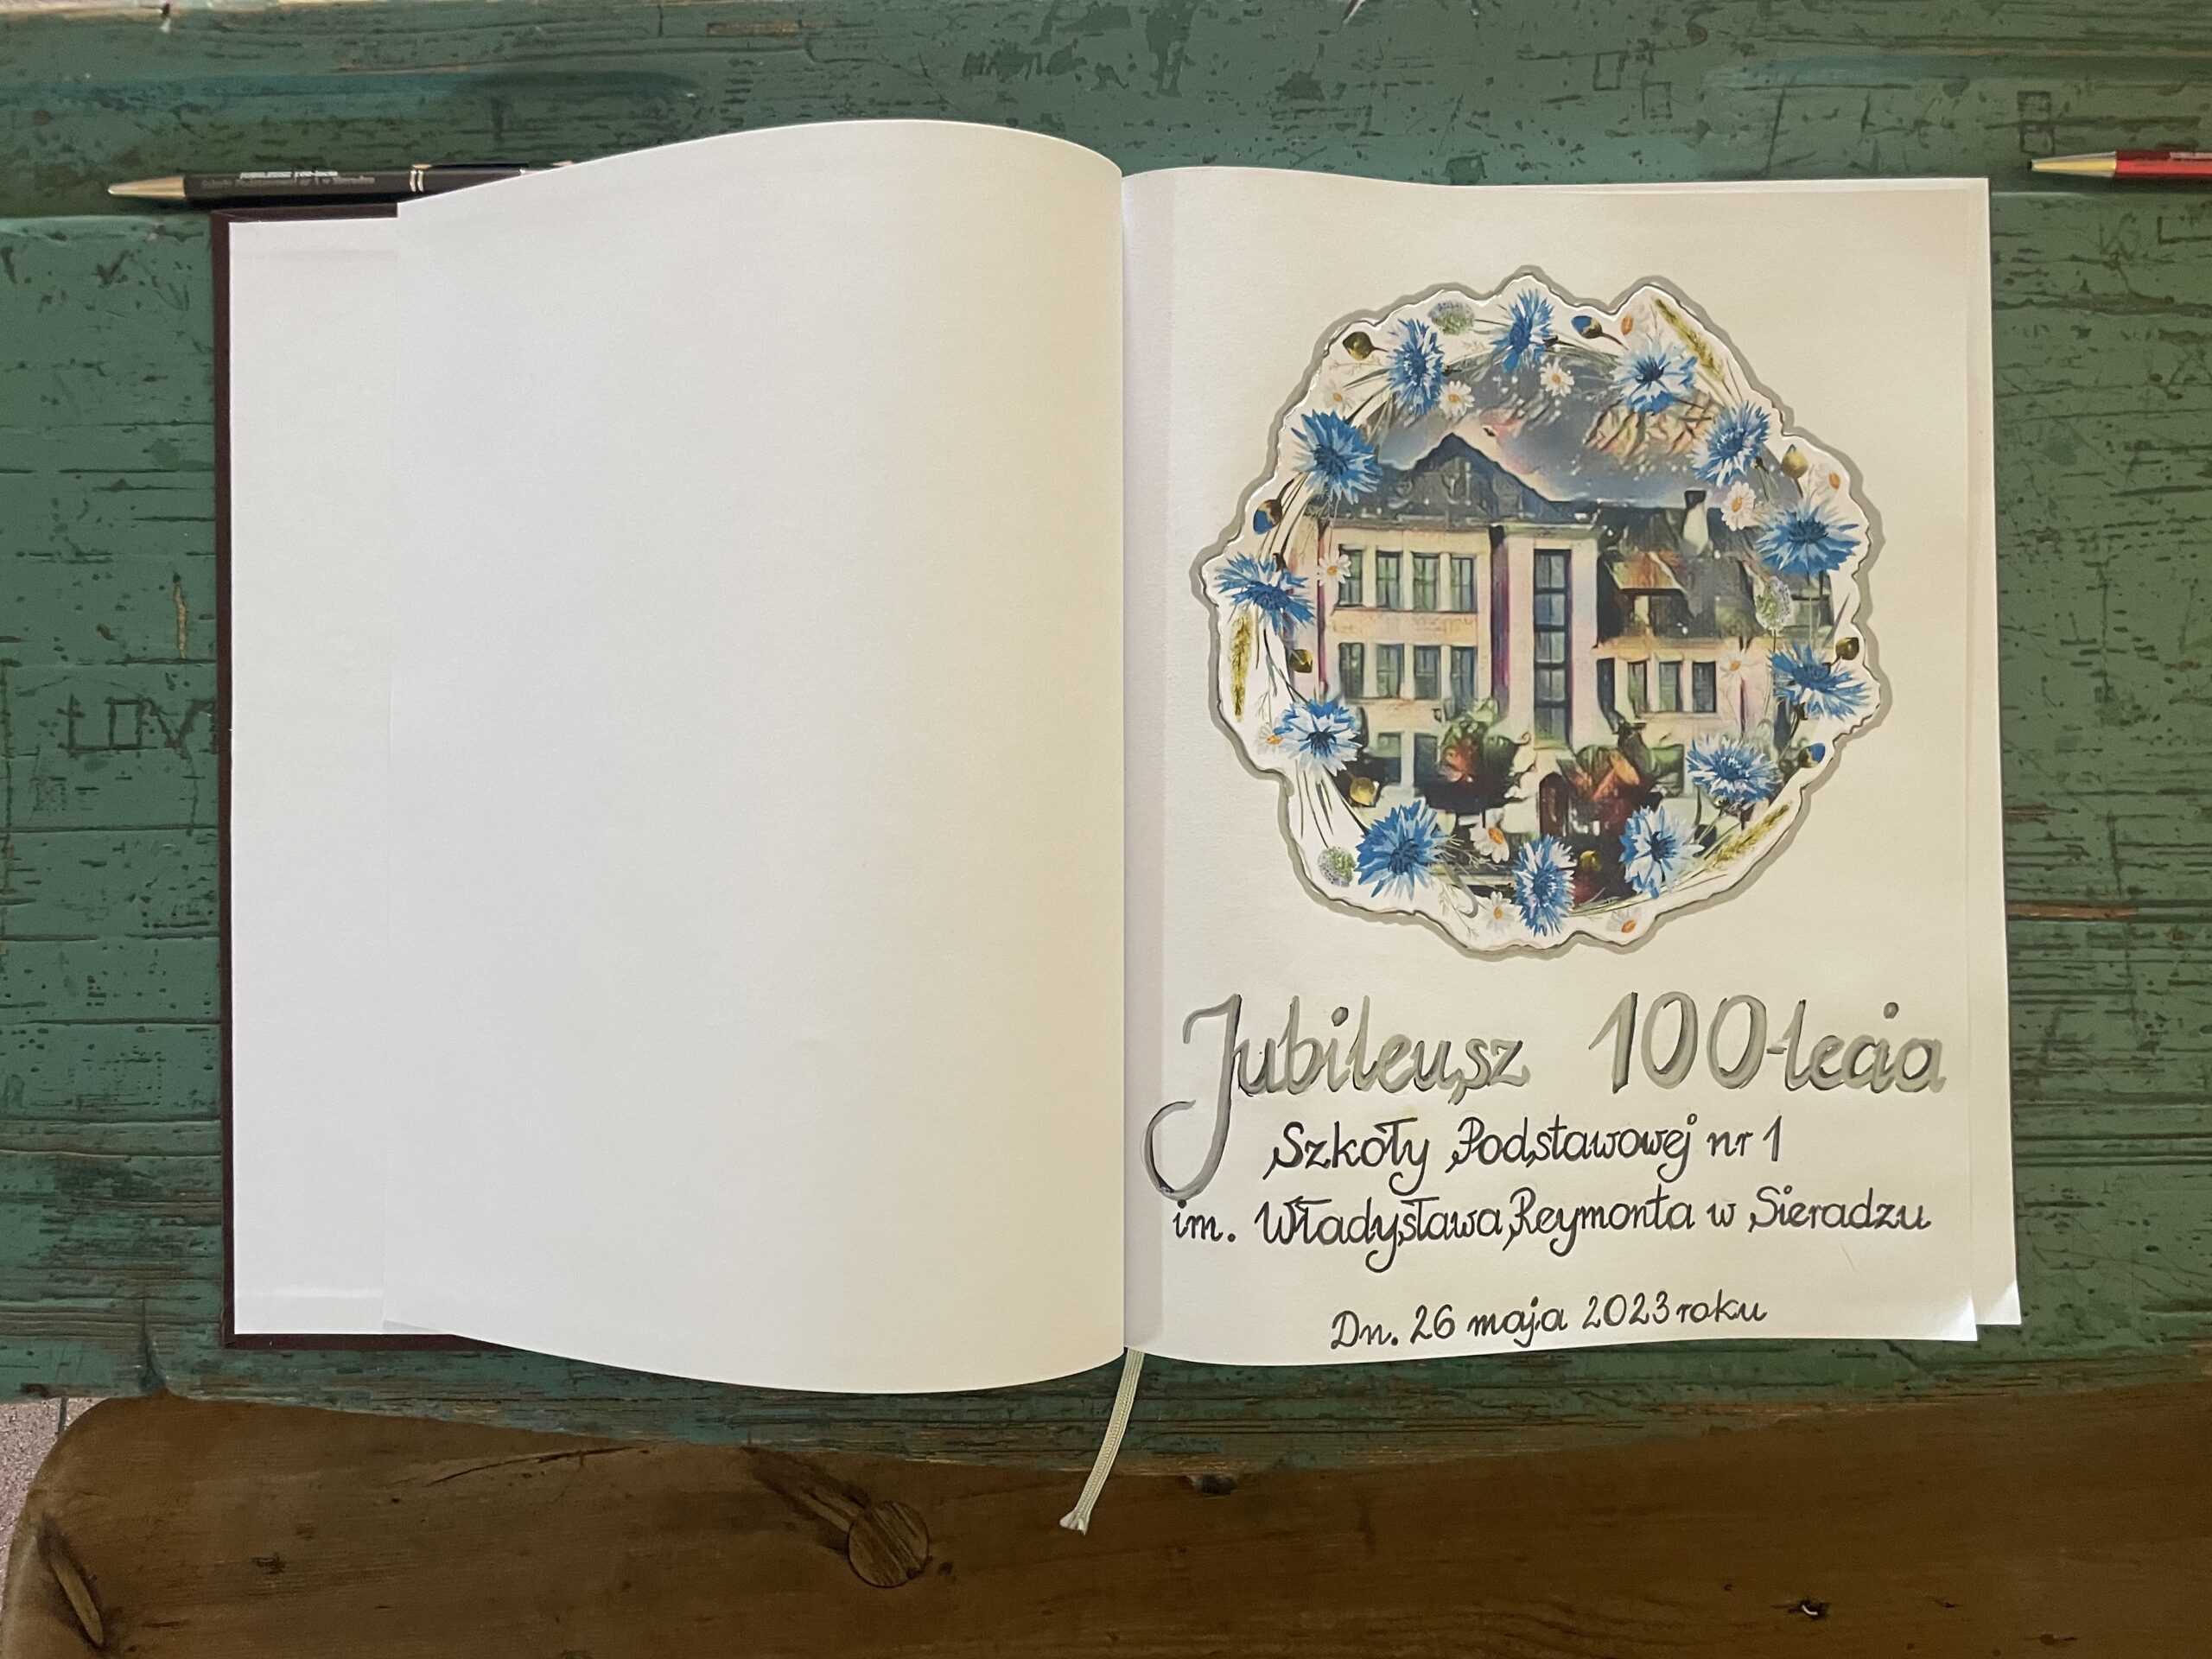 JUBILEUSZ 100-lecia
LOV
Jubileusz 100-lecia
Szkoły Podstawowej nr 1
im. Władysława Reymonta w Sieradzu
Dn. 26 maja 2023 roku